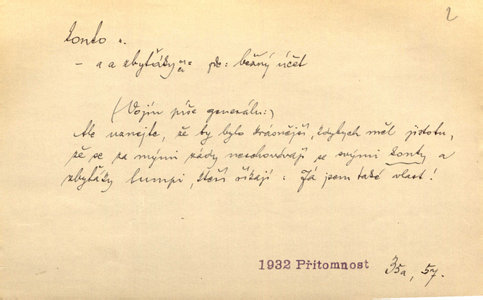 2
konto n.
- a a zbytšáky pl: běžný účet
(Vojín píše generálu:)
Ale uznejte, že by bylo krásnější, kdybych měl jistotu,
že se za mými zády neschovávají se svými konty a
zbytšáky lumpi, kteří říkají: Já jsem také vlast!
1932 Přítomnost 35a, 57.